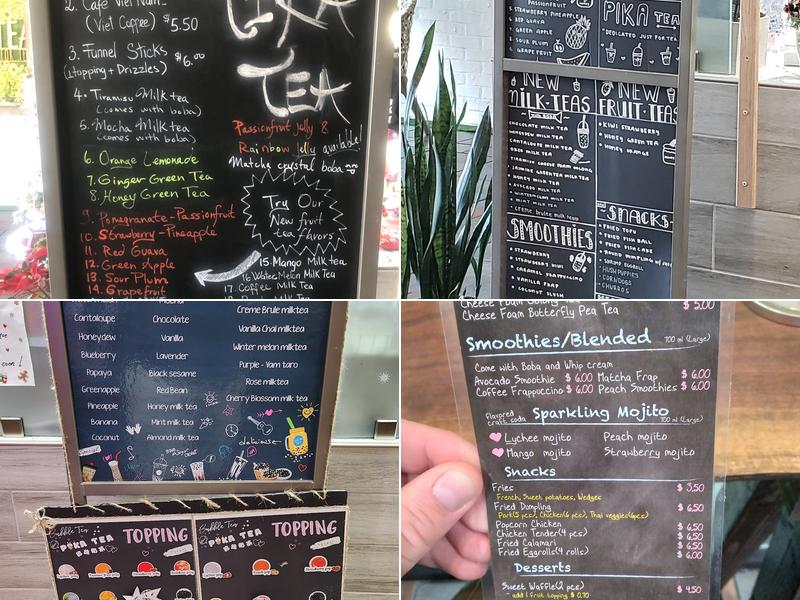 2. Cafe Viet Nam
(Viet Coffee) $5.50
3. Funnel Sticks $6.00
(1topping + Drizzles)
4. Tiramisu Milk tea
(comes with boba)
5. Mocha Milk tea
(comes with boba)
6. Orange Lemonade
7. Ginger-Green Tea
8. Honey Green Tea
9. Pomegranate-Passionfruit
10. Strawberry-Pineapple
11. Red Guava
12. Green Apple
13. Sour Plum
14. Grapefruit
TEA
Passionfruit jelly &
Rainbow jelly available!
Matcha crystal boba
Try Our
New fruit
tea flavors
15. Mango Milk Tea
16. Water Melon Milk Tea
17. Coffee Milk Tea
PASSIONFRUIT
STRAWBERRY PINEAPPLE
RED GUAVA
GREEN APPLE
SOUR PLUM
GRAPE FRUIT
PIKA TEA
"DEDICATED JUST FOR TEA
NEW
MILK-TEAS
CHOCOLATE MILK TEA
HONEYDEW MILK TEA
CANTALOUPE MILK TEA
OREO MILK TEA
TIRAMISU
HONEY MILK TEA
AVOCADO MILK TEA
WINTERMELON MILK TEA
MINT MILK TEA
creme brulee milk tea
NEW
FRUIT-TEAS
KIWI STRAWBERRY
HONEY GREEN TEA
HONEY ORANGE
SMOOTHIES
STRAWBERRY
CARAMEL FRAPPUCCINO
VANILLA FRAP
COCONUT SLUSH
SNACKS
FRIED TOFU
FRIED FISH BALL
FRIED FISH CAKE
SHRIMP EGGROLL
HUSH PUPPIES
CORNDOGS
CHURROS
Cantaloupe
Honeydew
Blueberry
Papaya
Greenapple
Pineapple
Banana
Coconut
Mocha
Chocolate
Vanilla
Lavender
Black sesame
Red Bean
Honey milk tea
Mint milk tea
Almond milk tea
Creme Brule milktea
Vanilla Chai milktea
Winter melon milktea
Purple - Yam taro
Rose milktea
Cherry Blossom milk tea
delicious
Bubble Tea
TOPPING
PIKA TEA
Bubble Tea
TOPPING
PIKA TEA
Cheese Foam Oolong Tea $ 5.00
Cheese Foam Butterfly Pea Tea
Smoothies/Blended 700 ml (Large)
Come with Boba and Whip cream
Avocado Smoothie $ 6.00 Matcha Frap $ 6.00
Coffee Frappuccino $ 6.00 Peach Smoothies $ 6.00
Flavored craft soda Sparkling Mojito 700 ml (Large)
Lychee mojito Peach mojito
Mango mojito Strawberry mojito
Snacks
Fries $ 3.50
French, Sweet potatoes, Wedges
Fried Dumpling $ 6.50
Pork(5 pcs), Chicken(6 pcs), Thai veggies(6pcs)
Popcorn Chicken $ 6.50
Chicken Tender(4 pcs) $ 6.50
Fried Calamari $ 6.50
Fried Eggrolls(4 rolls) $ 6.00
Desserts
Sweet Waffle(2 pcs) $ 4.50
- add 1 fruit topping $ 0.70